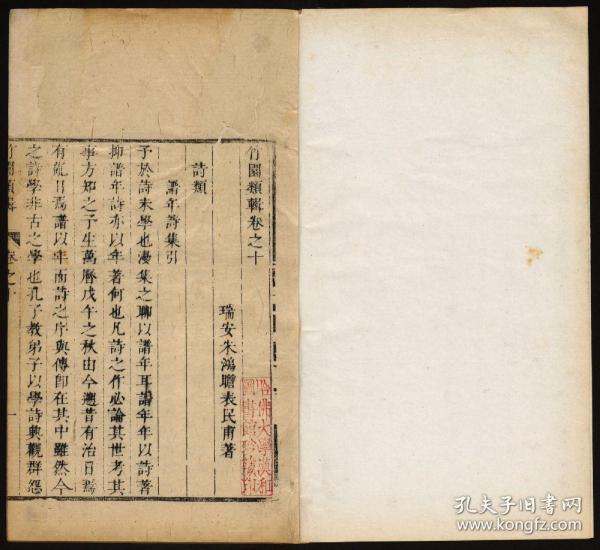 竹園類輯卷之十
瑞安朱鴻瞻表民甫著
詩類
譜年詩集引
予於詩未學也漫集之聊以譜年耳譜年年以詩著
抑譜年詩亦以年著何也凡詩之作必論其世考其
事方知之予生萬曆戊午之秋由今遡昔有治日焉
有亂日焉譜以年而詩之序與傳即在其中雖然今
之詩學非古之學也孔子教弟子以學詩興觀群怨
竹園類輯
卷之十
一
哈佛大學漢和
圖書館珍藏印
孔夫子旧书网
www.kongfz.com